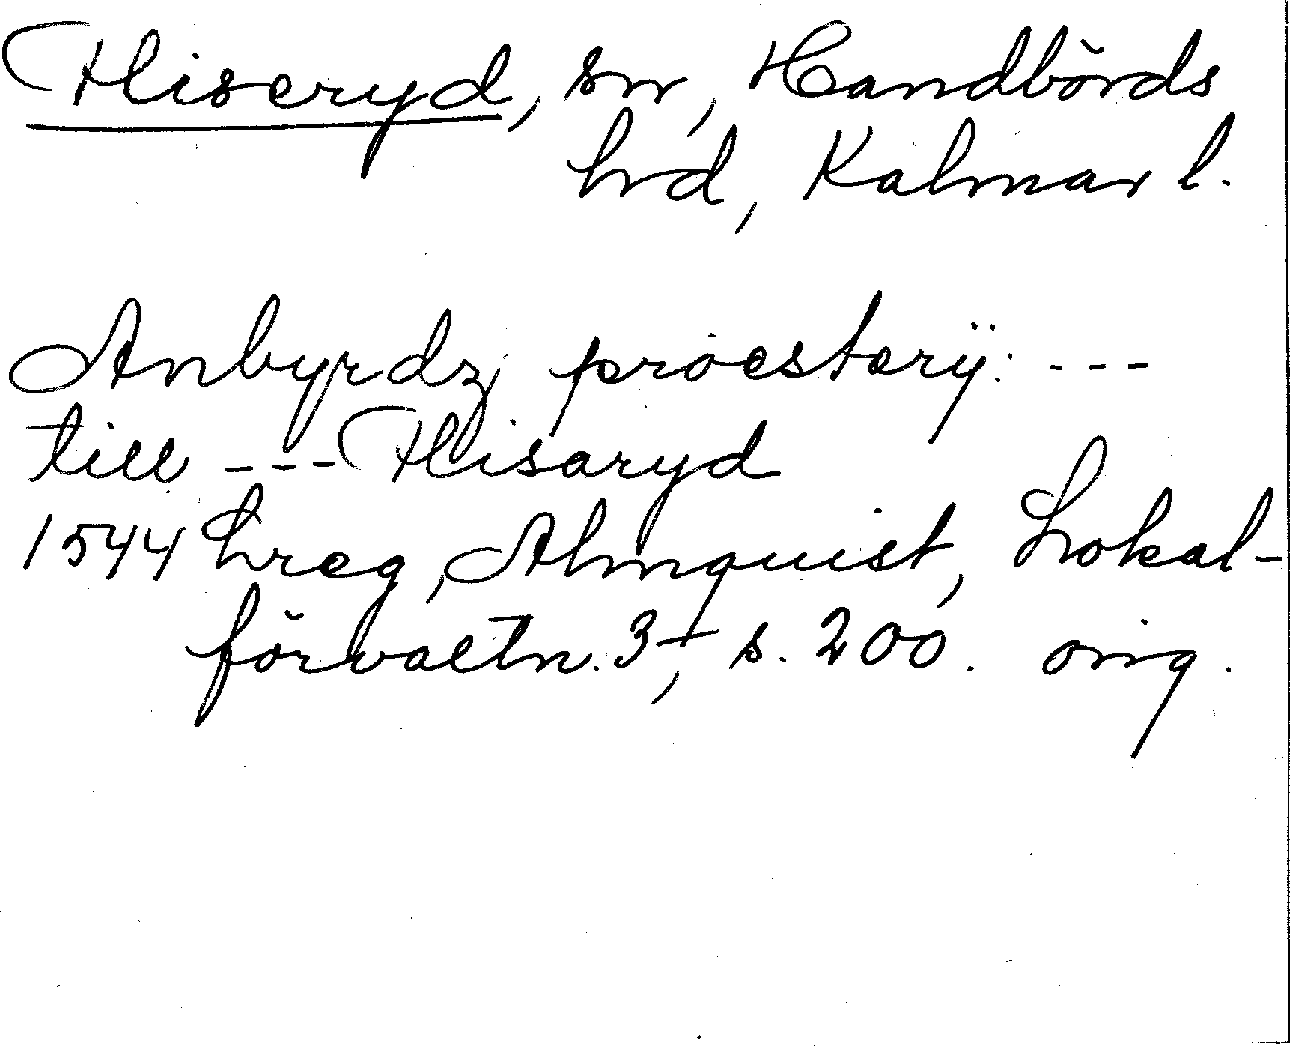 Hiseryd, sn, Handbörds
hrd, Kalmar l.
Anbyrdz proesterij: ---
till --- Hisaryd
1544 hreg, Almquist, Lokal-
förvaltn. 3, s. 200. orig.